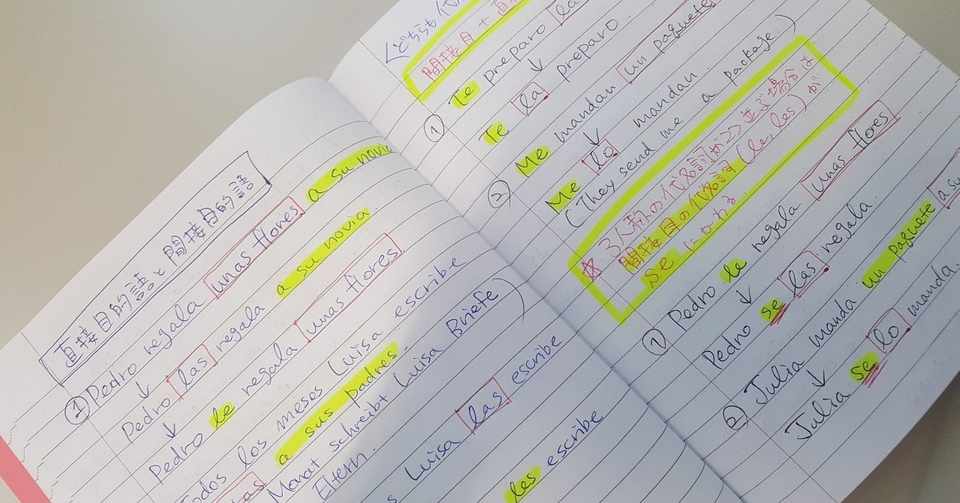 直接目的語と間接目的語
① Pedro regala unas flores a su novia
↓
Pedro las regala a su novia
↓
Pedro le regala unas flores
Todos los meses Luisa escribe
a sus padres.
Monat schreibt Luisa Briefe)
Eltern.
Luisa las escribe
les escribe
(どちらも代
間接目+直
① Te preparo la
↓
Te la preparo
② Me mandan un paquete
↓
Me lo mandan
(They send me a package)
☆ 3人称の代名詞が2つ並ぶ場合は
間接目の代名詞 (le, les) が
se にかわる
① Pedro le regala unas flores
↓
Pedro se las regala.
② Julia manda un paquete a su
↓
Julia se lo manda.